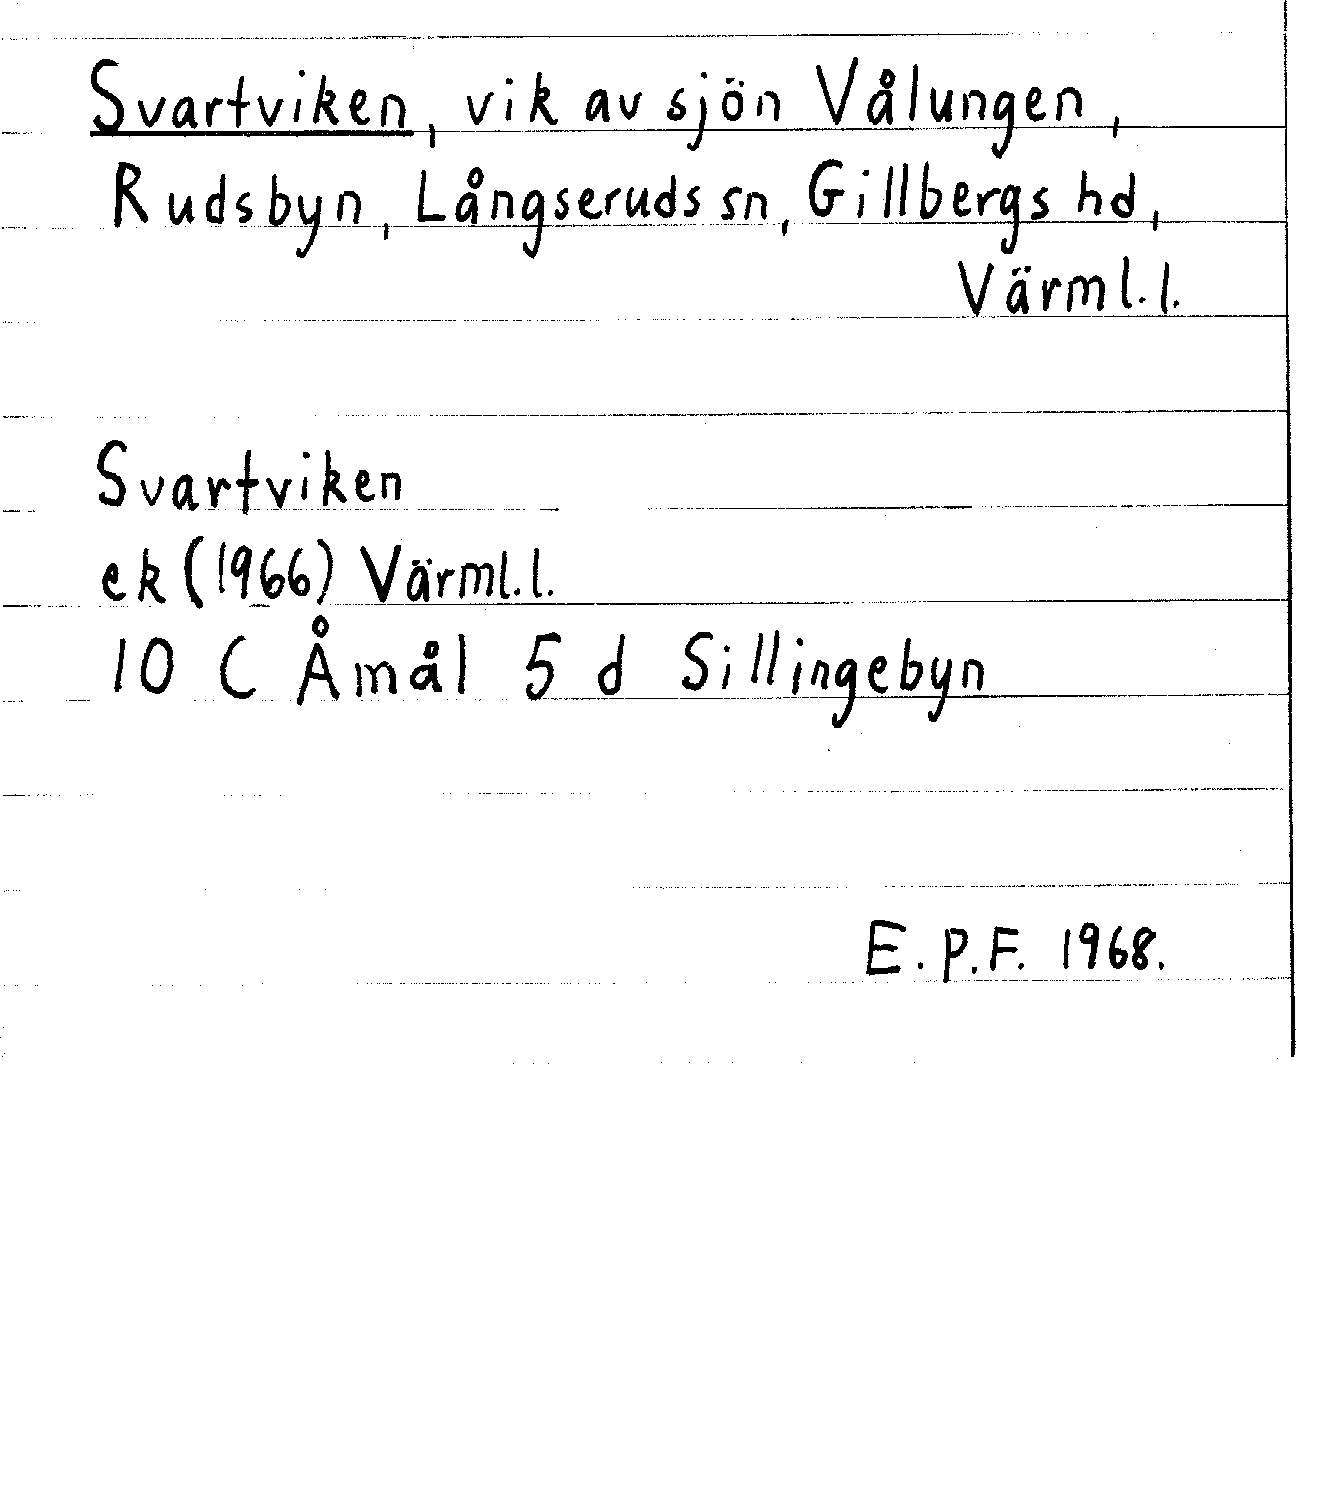 Svartviken, vik av sjön Vålungen,
Rudsbyn, Långseruds sn, Gillbergs hd,
Värml. l.
Svartviken
ek (1966) Värml. l.
10 C Åmål 5 d Sillingebyn
E. P. F. 1968.